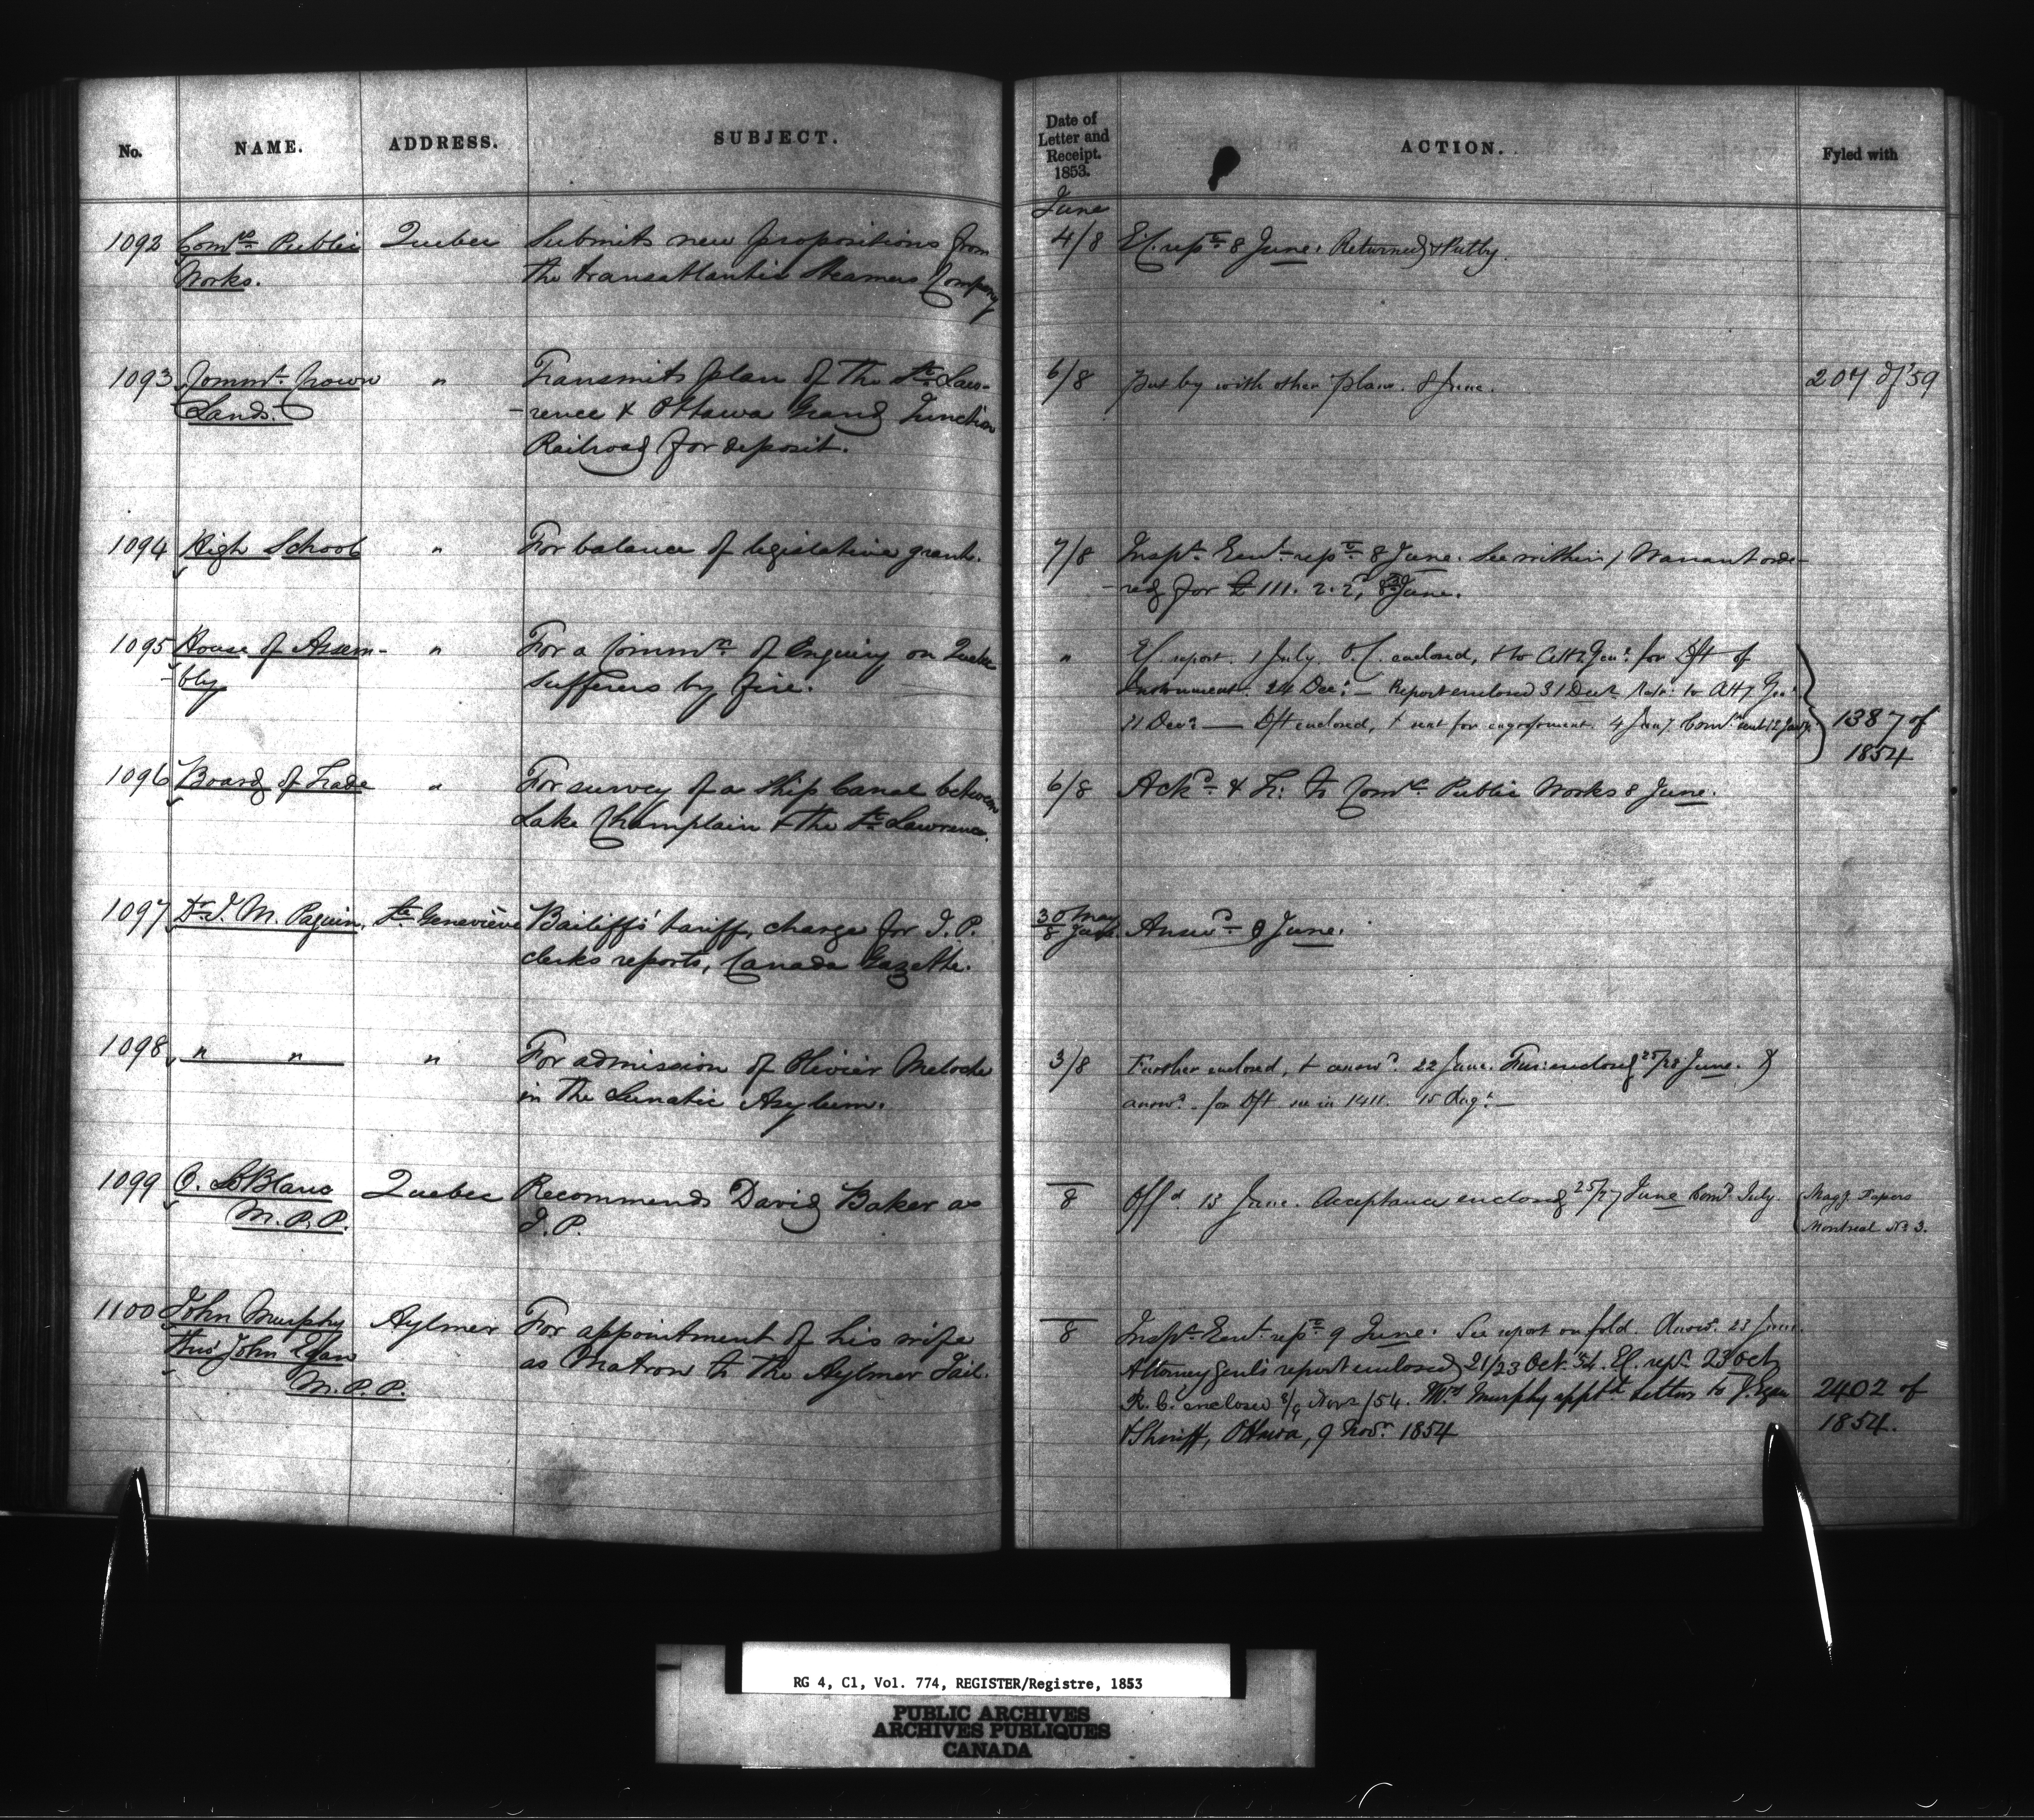 No. NAME. ADDRESS. SUBJECT.
Date of Letter and Receipt. 1853. ACTION. Fyled with
June
1092 Comrs Public Quebec Submits new propositions from 4/8 Ex. rept 8 June. Returned & Putby.
Works. the transatlantic Steamers Company
1093 Commr Crown " Transmits plan of the St. Law- 6/8 put by with other plans. 8 June. 207 of '59
Lands. -rence & Ottawa Grand Junction
Railroad for deposit.
1094 High School " For balance of legislative grant. 7/8 Inspr Genl rept 8 June. See within / Warrant orde-
-red for £111. 2. 2, June.
1095 House of Assem- " For a Commn of Enquiry on Quebec " report 1 July. O.C. enclosed, & to Atty Genl for Dft of
-bly sufferers by fire. Instrument. 24 Dec. — Report enclosed 31 Decr to Atty Genl
Dft enclosed, & sent for engrossment 4 Jany 1387 of
1854
1096 Board of Trade " For survey of a Ship Canal between 6/8 Ackd & Tr. to Comrs Public Works 8 June.
Lake Champlain & the St. Lawrence.
1097 Dr. J. M. Paquin, Ste Geneviève Bailiffs' tariff, charge for J. P. 30 May / 8 June Answd 8 June.
clerks reports, Canada Gazette.
1098 " " " For admission of Olivier Meloche 3/8 Further enclosed, & answd. 22 June. Fur. enclosed 25/28 June. &
in the Lunatic Asylum. answd. for Dft see in 1411. 15 Augt —
1099 O. LeBlanc Quebec Recommends David Baker as —/8 Offd. 15 June. Acceptance enclosed 25/27 June Comn July. Magy. Papers
M. P. P. J. P. Montreal No 3.
1100 John Murphy Aylmer For appointment of his wife —/8 Inspr Genl rept 9 June. See report on fold. Answd. 23 June.
thro' John Egan as Matron to the Aylmer Jail. Attorney Genl's report enclosed 21/23 Oct. 54. Ex. rept 23 Oct
M. P. P. R. C. enclosed 8/9 Novr /54. Mrs Murphy apptd Letters to J. Egan 2402 of
& Sheriff, Ottawa, 9 Novr 1854 1854.
RG 4, C1, Vol. 774, REGISTER/Registre, 1853
PUBLIC ARCHIVES
ARCHIVES PUBLIQUES
CANADA